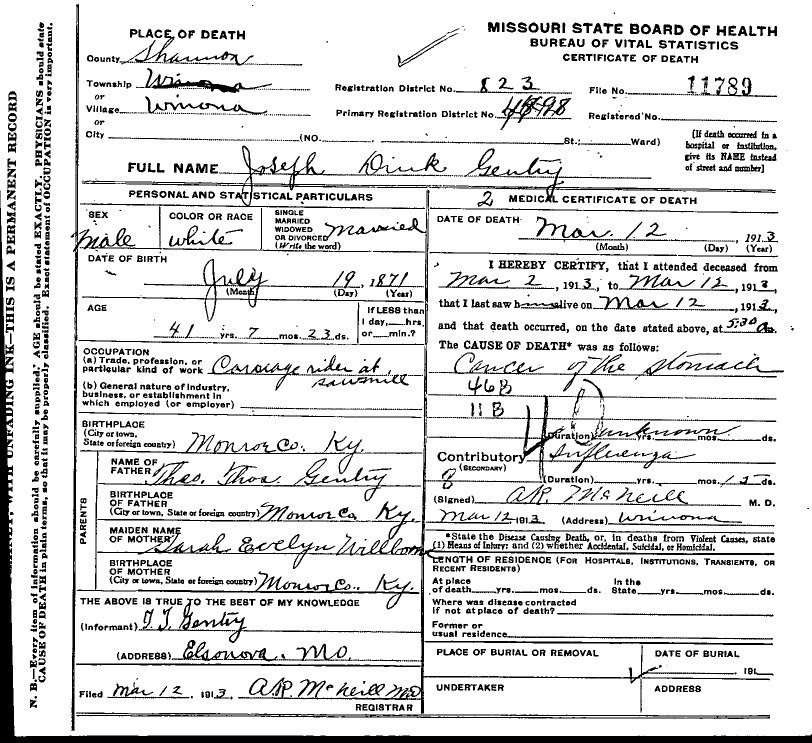 MISSOURI STATE BOARD OF HEALTH
BUREAU OF VITAL STATISTICS
CERTIFICATE OF DEATH
PLACE OF DEATH
County Shannon
Township Winona
or
Village Winona
or
City (NO. St.; Ward)
Registration District No. 823 File No. 11789
Primary Registration District No. Registered No.
[If death occurred in a
hospital or institution,
give its NAME instead
of street and number]
FULL NAME Joseph Dink Gentry
PERSONAL AND STATISTICAL PARTICULARS
SEX
male
COLOR OR RACE
white
SINGLE
MARRIED
WIDOWED
OR DIVORCED
(Write the word)
Married
DATE OF BIRTH
July 19, 1871
(Month) (Day) (Year)
AGE
41 yrs. 7 mos. 23 ds.
If LESS than
1 day,....hrs.
or....min.?
OCCUPATION
(a) Trade, profession, or
particular kind of work Carriage rider at
sawmill
(b) General nature of industry,
business, or establishment in
which employed (or employer)
BIRTHPLACE
(City or town,
State or foreign country) Monroe Co. Ky.
PARENTS
NAME OF
FATHER Theo. Thos. Gentry
BIRTHPLACE
OF FATHER
(City or town, State or foreign country) Monroe Co. Ky.
MAIDEN NAME
OF MOTHER Sarah Evelyn
BIRTHPLACE
OF MOTHER
(City or town, State or foreign country) Monroe Co. Ky.
THE ABOVE IS TRUE TO THE BEST OF MY KNOWLEDGE
(Informant) T. J. Gentry
(ADDRESS) Elsonova. Mo.
Filed Mar 12, 1913, A.R. McNeill MD
REGISTRAR
2 MEDICAL CERTIFICATE OF DEATH
DATE OF DEATH Mar. 12, 1913
(Month) (Day) (Year)
I HEREBY CERTIFY, that I attended deceased from
Mar 2, 1913, to Mar 12, 1913
that I last saw him alive on Mar 12, 1913,
and that death occurred, on the date stated above, at 5:30 a.
The CAUSE OF DEATH* was as follows:
Cancer of the stomach
46B
11B
(Duration) unknown yrs. mos. ds.
Contributory Influenza
(SECONDARY)
8 (Duration) yrs. mos. ds.
(Signed) A.R. McNeill M. D.
Mar 12 1913 (Address) Winona
*State the Disease Causing Death, or, in deaths from Violent Causes, state
(1) Means of Injury; and (2) whether Accidental, Suicidal, or Homicidal.
LENGTH OF RESIDENCE (FOR HOSPITALS, INSTITUTIONS, TRANSIENTS, OR
RECENT RESIDENTS)
At place
of death....yrs.....mos.....ds.
In the
State....yrs.....mos.....ds.
Where was disease contracted
if not at place of death?
Former or
usual residence
PLACE OF BURIAL OR REMOVAL
DATE OF BURIAL
, 191
UNDERTAKER
ADDRESS
WITH UNFADING INK—THIS IS A PERMANENT RECORD
N. B.—Every item of information should be carefully supplied. AGE should be stated EXACTLY. PHYSICIANS should state
CAUSE OF DEATH in plain terms, so that it may be properly classified. Exact statement of OCCUPATION is very important.